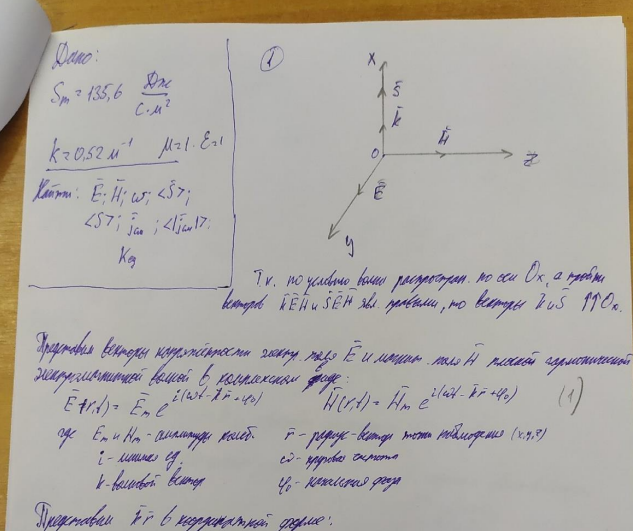 Дано:
Sm = 135,6 Дж / с·м²
k = 0,52 м⁻¹ μ=1 · ε=1
Найти: E̅; H̅; ω; <S̅>;
<S>; j̅см; <|j̅см|>;
Kед
①
X
S̅
k̅
O
H̅
Z
E̅
y
Т.к. по условию волна распростран. по оси Ox, а тройки
векторов k̅E̅H̅ и S̅E̅H̅ явл. правыми, то векторы k̅ и S̅ ↑↑Ox.
Представим векторы напряжённости электр. поля E̅ и магнит. поля H̅ плоской гармонической
электромагнитной волной в комплексном виде:
E̅(r,t) = E̅m e^i(ωt - k̅r̅ + φ₀) H̅(r,t) = H̅m e^i(ωt - k̅r̅ + φ₀) (1)
где Em и Hm - амплитуды колеб. r̅ - радиус-вектор точки наблюдения (x,y,z)
i - мнимая ед. ω - круговая частота
k - волновой вектор φ₀ - начальная фаза
Представим k̅r̅ в координатной форме: